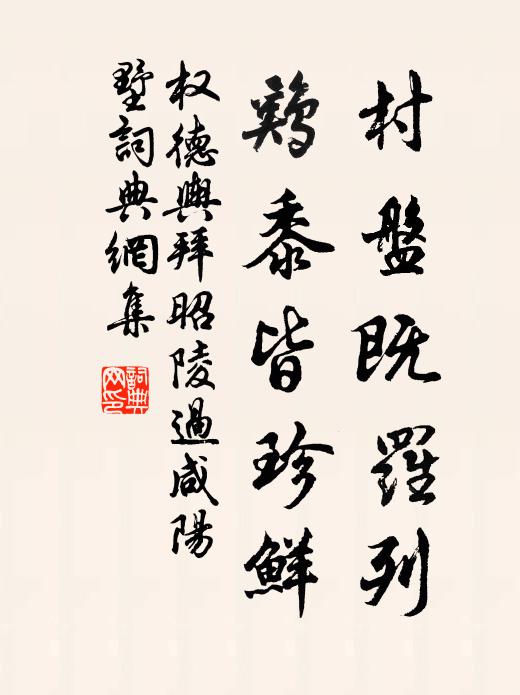 村盤既羅列
鷄黍皆珍鮮
权德輿拜昭陵過咸陽
墅詞典網集
詞典
网印